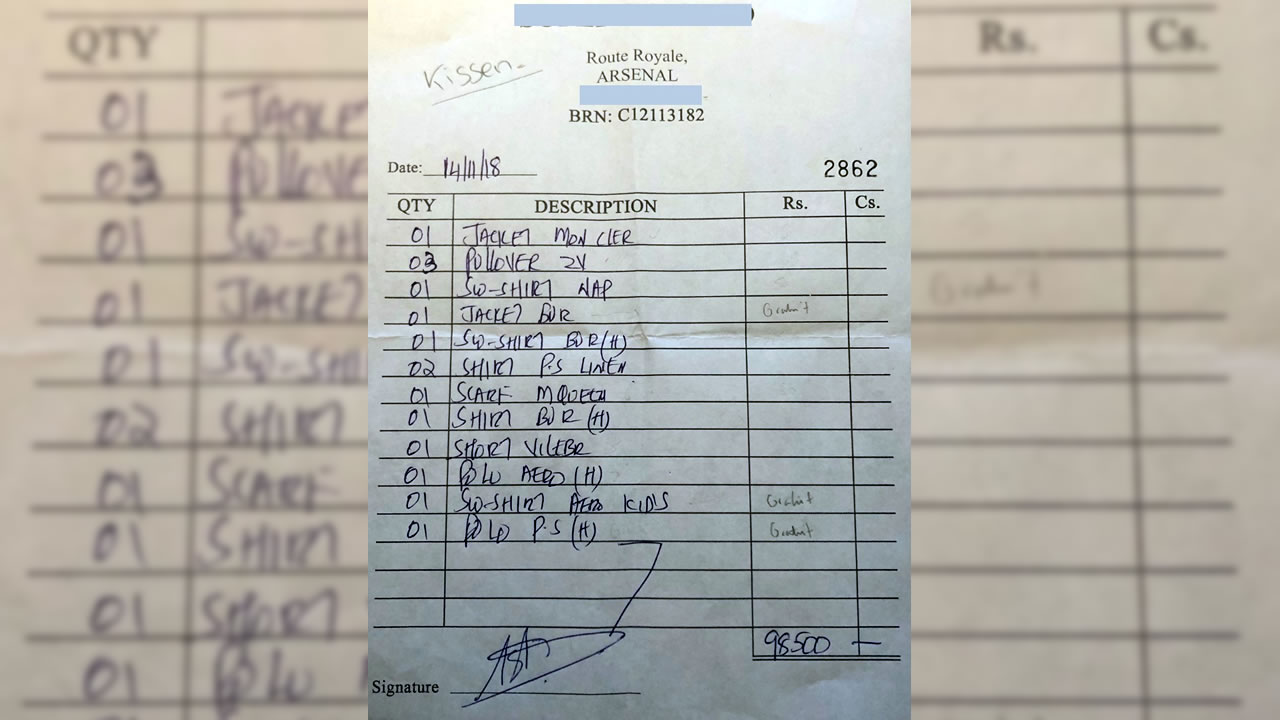 Kissen.
Route Royale,
ARSENAL
BRN: C12113182
Date: 14/11/18
2862
QTY DESCRIPTION Rs. Cs.
01 JACKET MONCLER
03 PULLOVER ZV
01 SW-SHIRT NAP
01 JACKET BUR
01 SW-SHIRT BUR (H)
02 SHIRT P.S LINEN
01 SCARF MQUEEN
01 SHIRT BUR (H)
01 SHORT VILEBR
01 POLO AERO (H)
01 SW-SHIRT AERO KIDS
01 POLO P.S (H)
98500 —
Signature